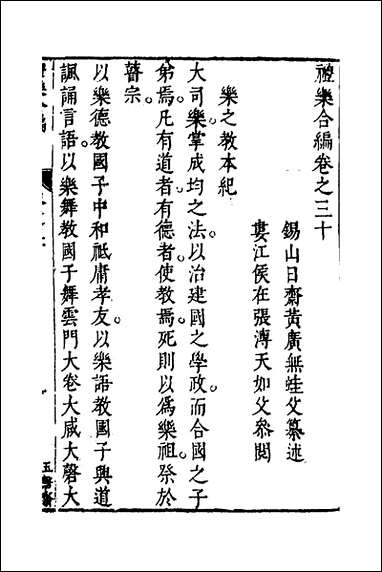 禮樂合編卷之三十
錫山日齋黃廣無蛙父纂述
婁江侯在張溥天如父參閱
樂之教本紀
大司樂掌成均之法。以治建國之學政。而合國之子
弟焉。凡有道者有德者。使教焉。死則以爲樂祖。祭於
瞽宗。
以樂德教國子中和祇庸孝友。以樂語教國子興道
諷誦言語。以樂舞教國子舞雲門大卷大咸大磬大